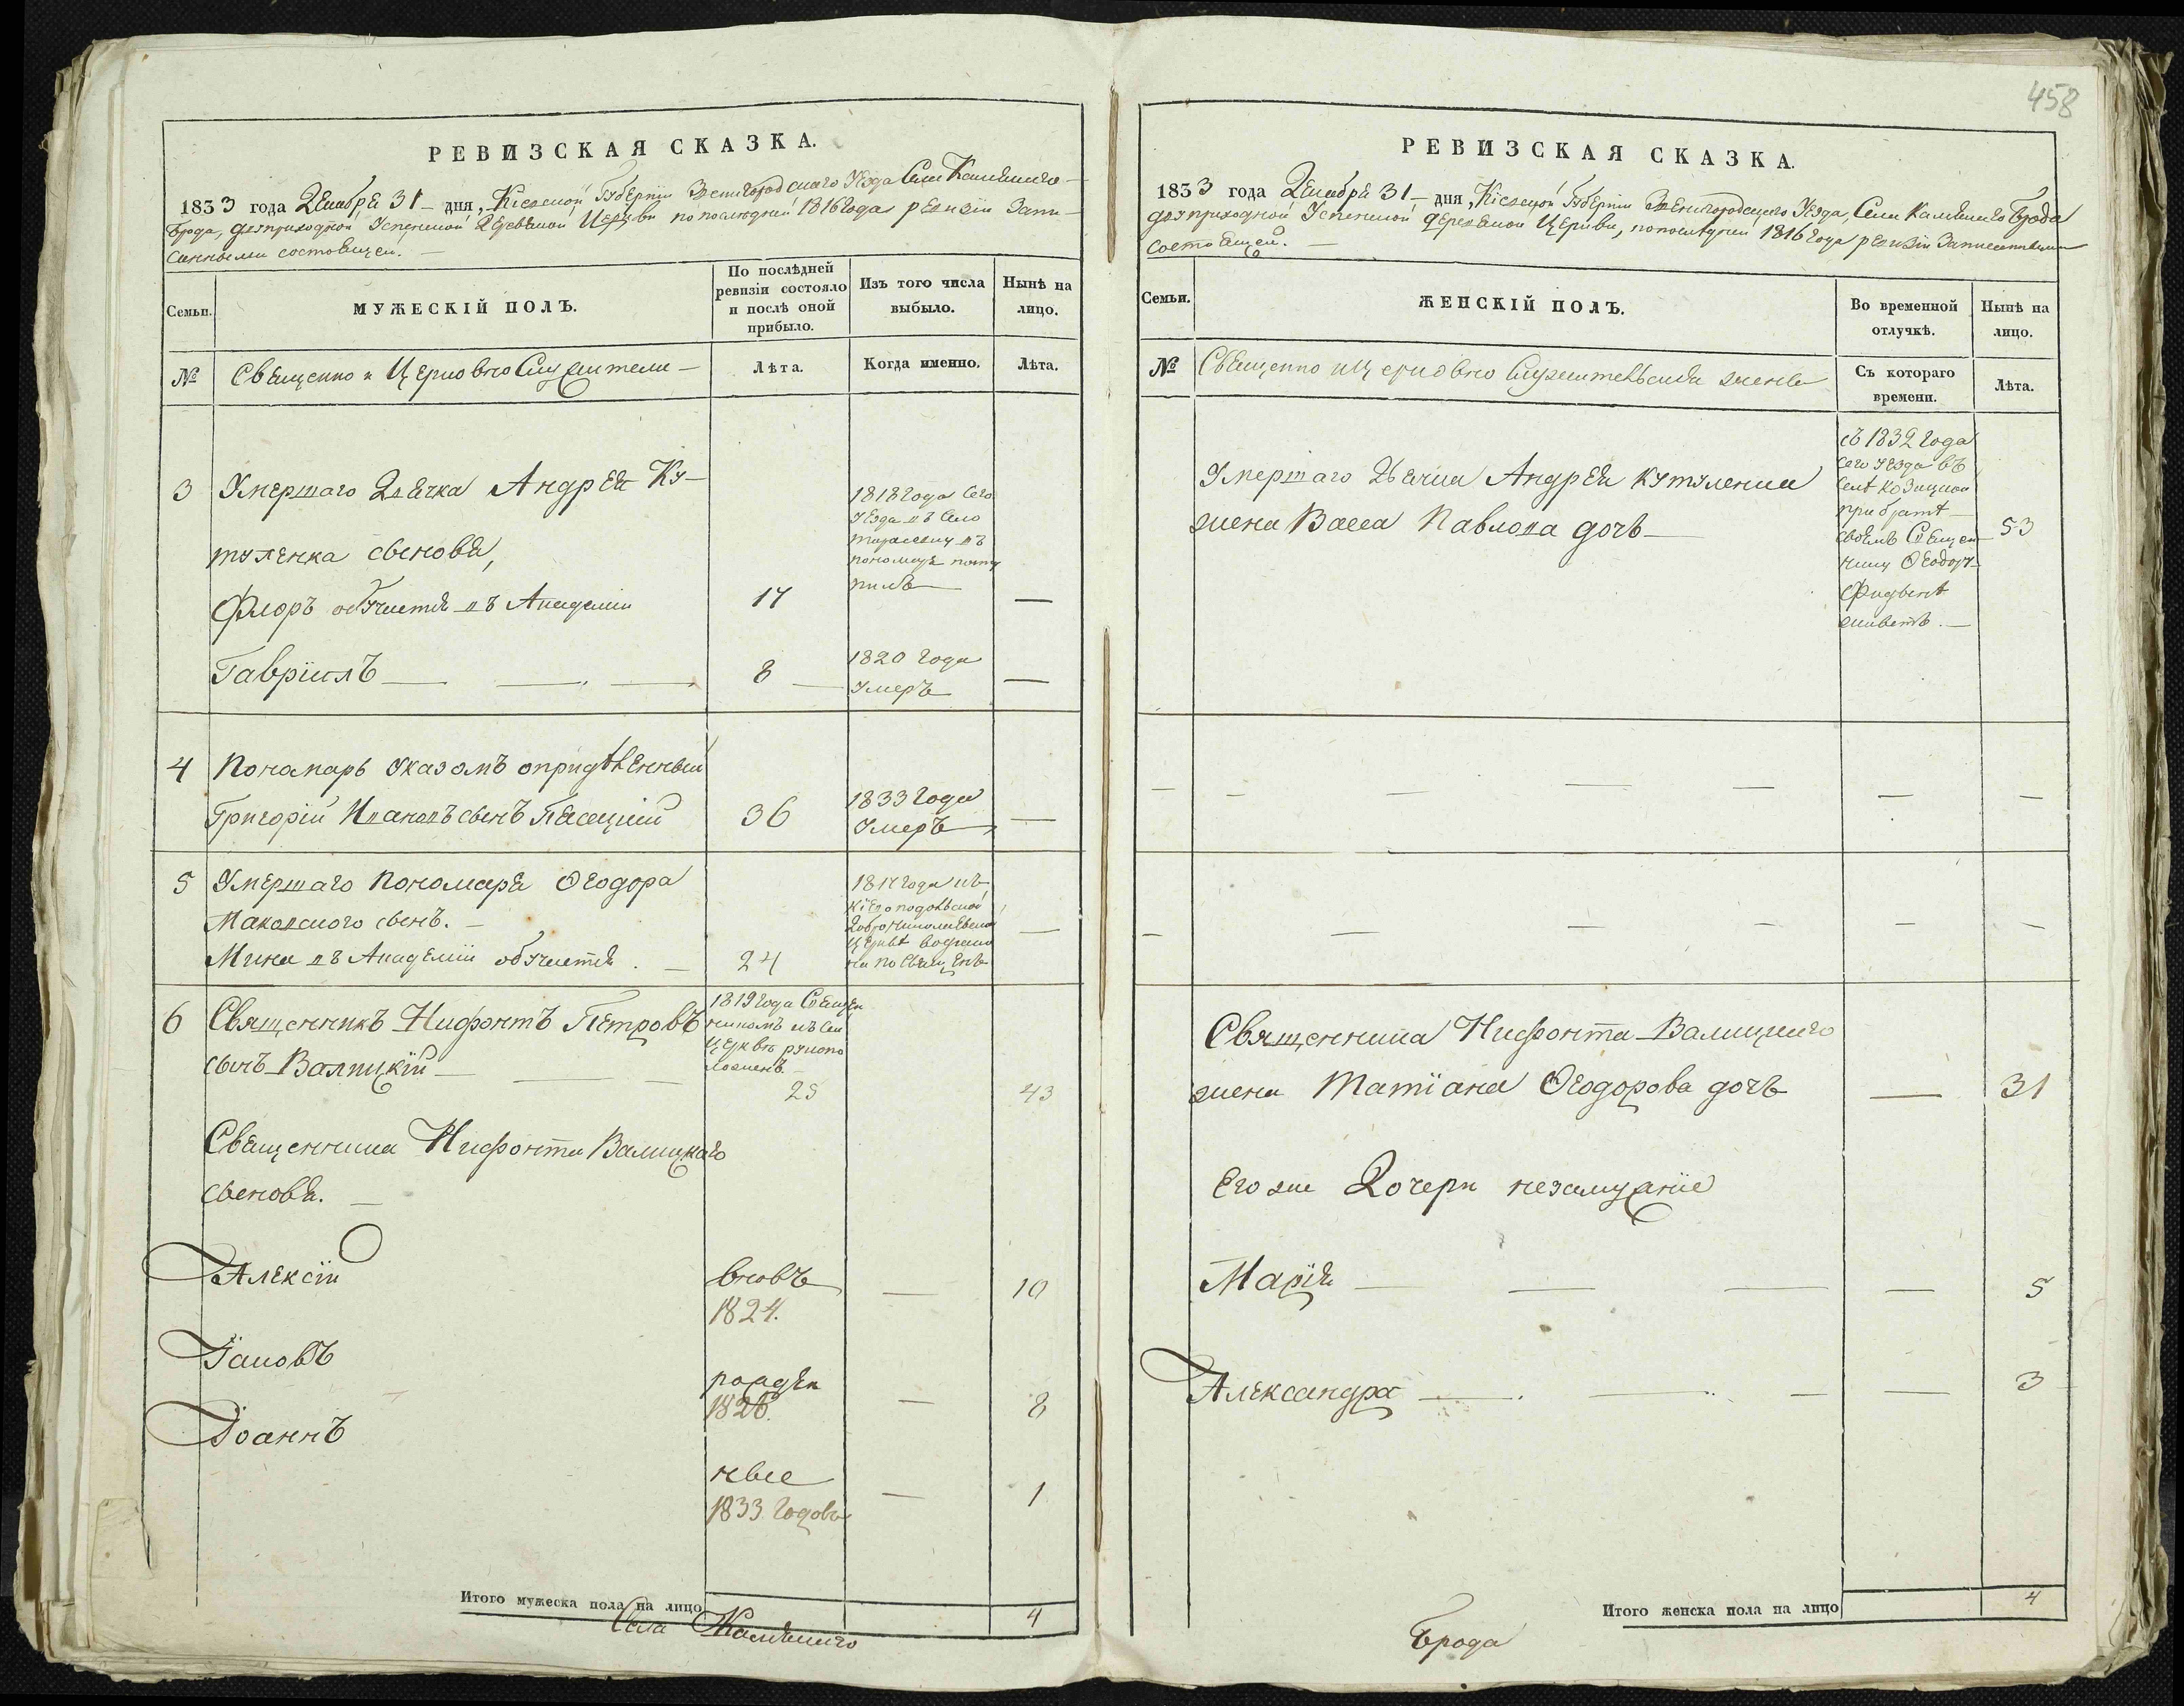 458
РЕВИЗСКАЯ СКАЗКА.
1833 года Декабря 31 — дня, Кіевской Губерніи Звенигородскаго Уезда Села Камянаго —
Брода, десприходной Успенской Деревяной Церкви по последней 1816 года ревизіи Запи-
санными состоящей. —
Семьи.
МУЖЕСКІЙ ПОЛЪ.
По послѣдней
ревизіи состояло
и послѣ оной
прибыло.
Изъ того числа
выбыло.
Нынѣ на
лицо.
№
Священно и Церковно Служители —
Лѣта.
Когда именно.
Лѣта.
3 Умершаго Дьячка Андрея Ку-
туленка сыновья,
Флоръ обучается въ Академіи 17
1818 года Сего
Уезда въ село
въ
пономаря посту
пилъ —
—
Гавріилъ — — — 8 — 1820 года
умеръ —
4 Пономарь Указомъ опридѣленный
Григорій Ивановъ сынъ Песецкій 36 1833 года
умеръ —
5 Умершаго Пономаря Ѳеодора
Маковского сынъ. —
Мина въ Академіи обучается. — 24
1817 года къ
Кіево подольской
церквѣ
—
6 Священникъ Нифонтъ Петровъ
сынъ Валицкій — — —
1819 года Священ
никомъ къ сей
Церквѣ рукопо
ложенъ. —
25 43
Священника Нифонта Валицкаго
сыновья. —
Алексій вновь
1824. — 10
Іаковъ рожден
1826. — 8
Іоаннъ ные
1833 годовъ — 1
Итого мужеска пола на лицо 4
Села Камянаго
РЕВИЗСКАЯ СКАЗКА.
1833 года Декабря 31 — дня, Кіевской Губерніи Звенигородскаго Уезда, Села Камянаго Брода
десприходной Успенской деревяной Церкви, по последней 1816 года ревизіи Записанными
состоящей. —
Семьи.
ЖЕНСКІЙ ПОЛЪ.
Во временной
отлучкѣ.
Нынѣ на
лицо.
№
Священно и Церковно Служительска жены
Съ котораго
времени.
Лѣта.
Умершаго Дьячка Андрея Кутуленка
жена Васса Павлова дочь —
съ 1832 года
сего уезда въ
селѣ Козацкой
при братѣ —
своемъ Священ
нику Ѳеодору
живетъ. —
53
— — — — — —
— — — — — —
Священника Нифонта Валицкаго
жена Татіана Ѳеодорова дочь — 31
Его же Дочери незамужніе
Марія — — — — 5
Александра — — — — 3
Итого женска пола на лицо 4
Брода